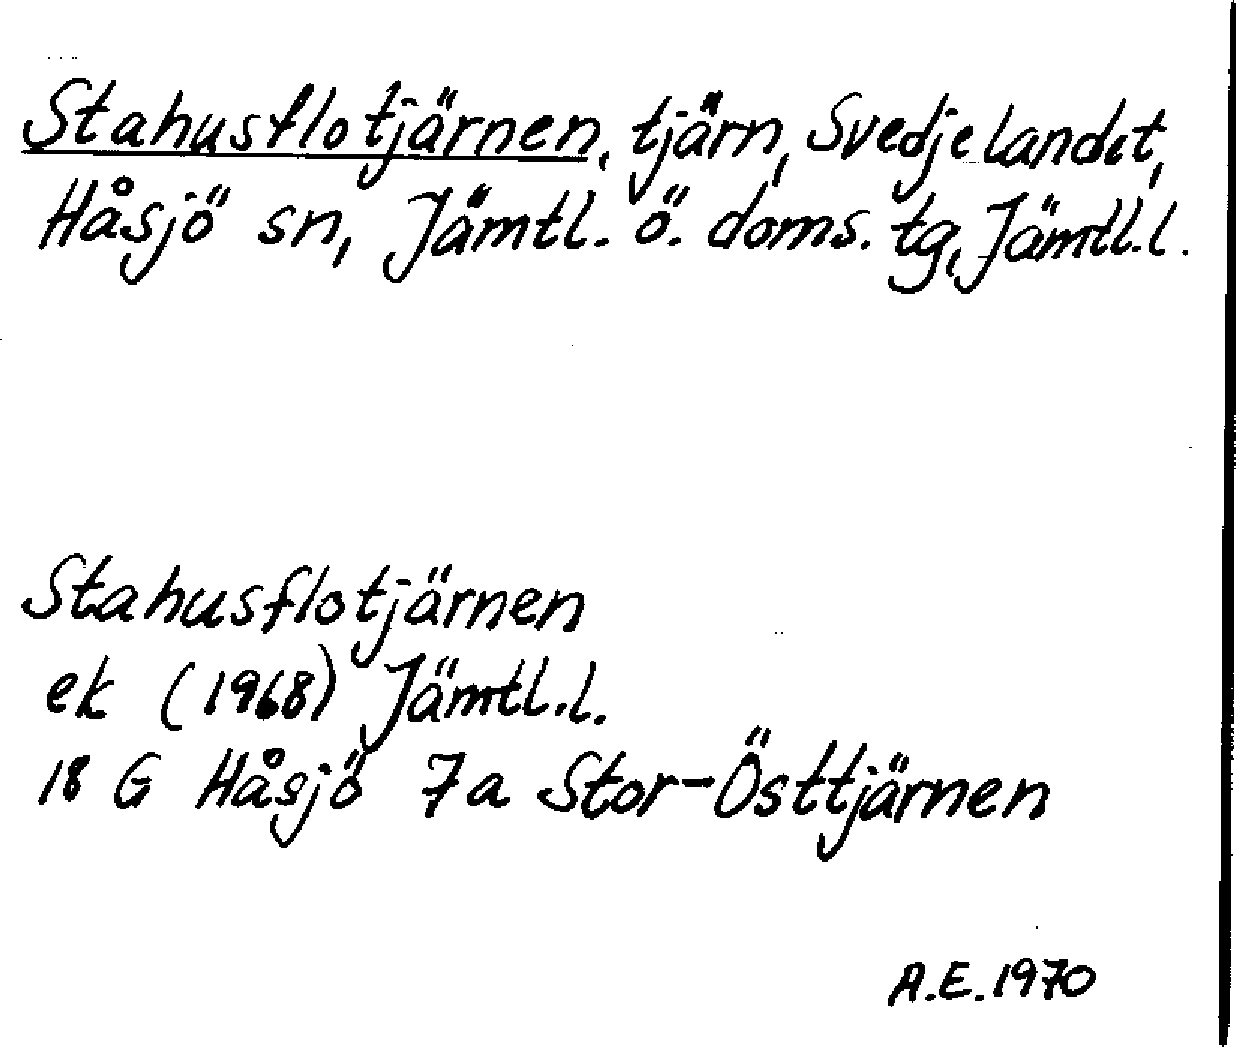 Stahusflotjärnen, tjärn, Svedjelandet,
Håsjö sn, Jämtl. ö. doms. tg, Jämtl.l.
Stahusflotjärnen
ek (1968) Jämtl.l.
18 G Håsjö 7a Stor-Östtjärnen
A.E. 1970